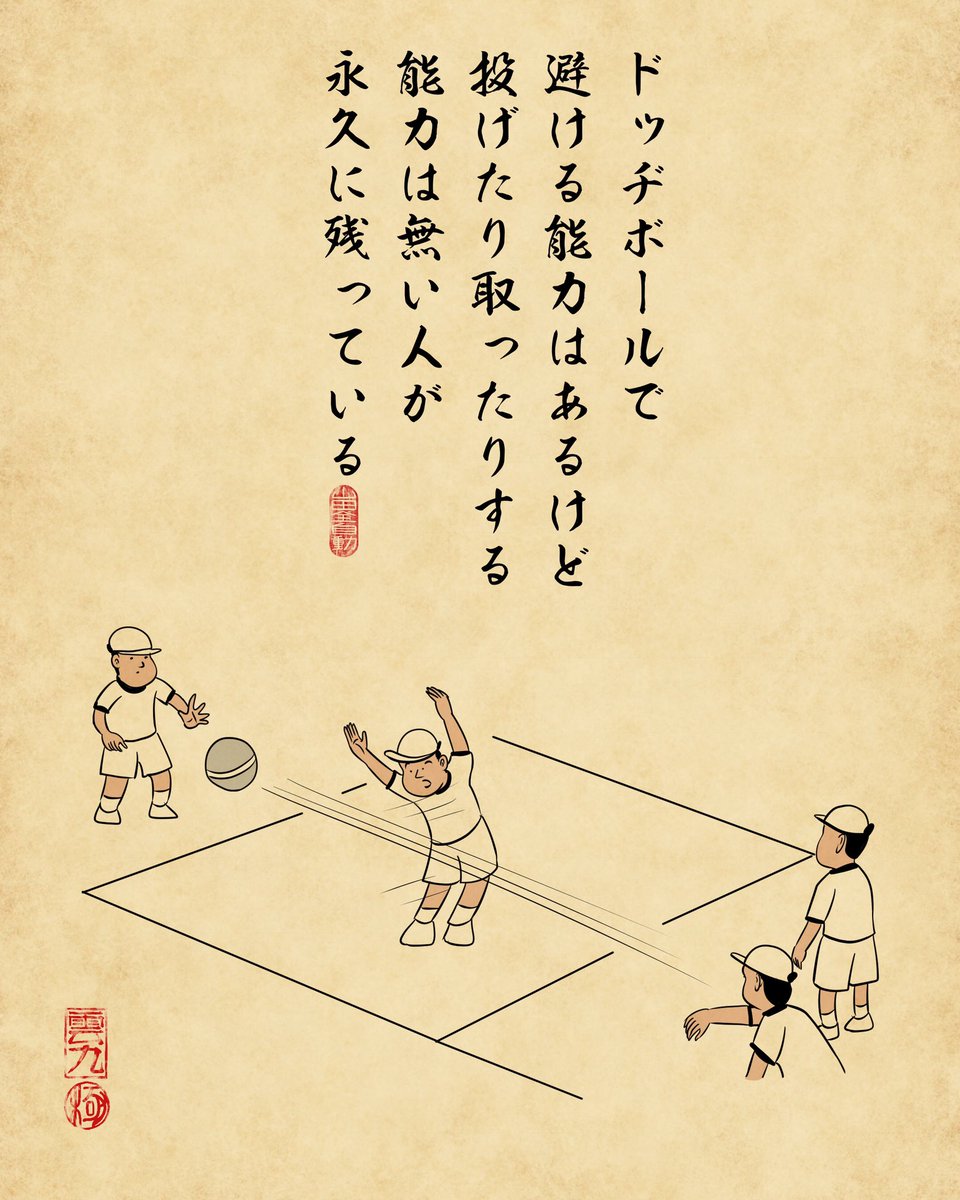 ドッヂボールで
避ける能力はあるけど
投げたり取ったりする
能力は無い人が
永久に残っている